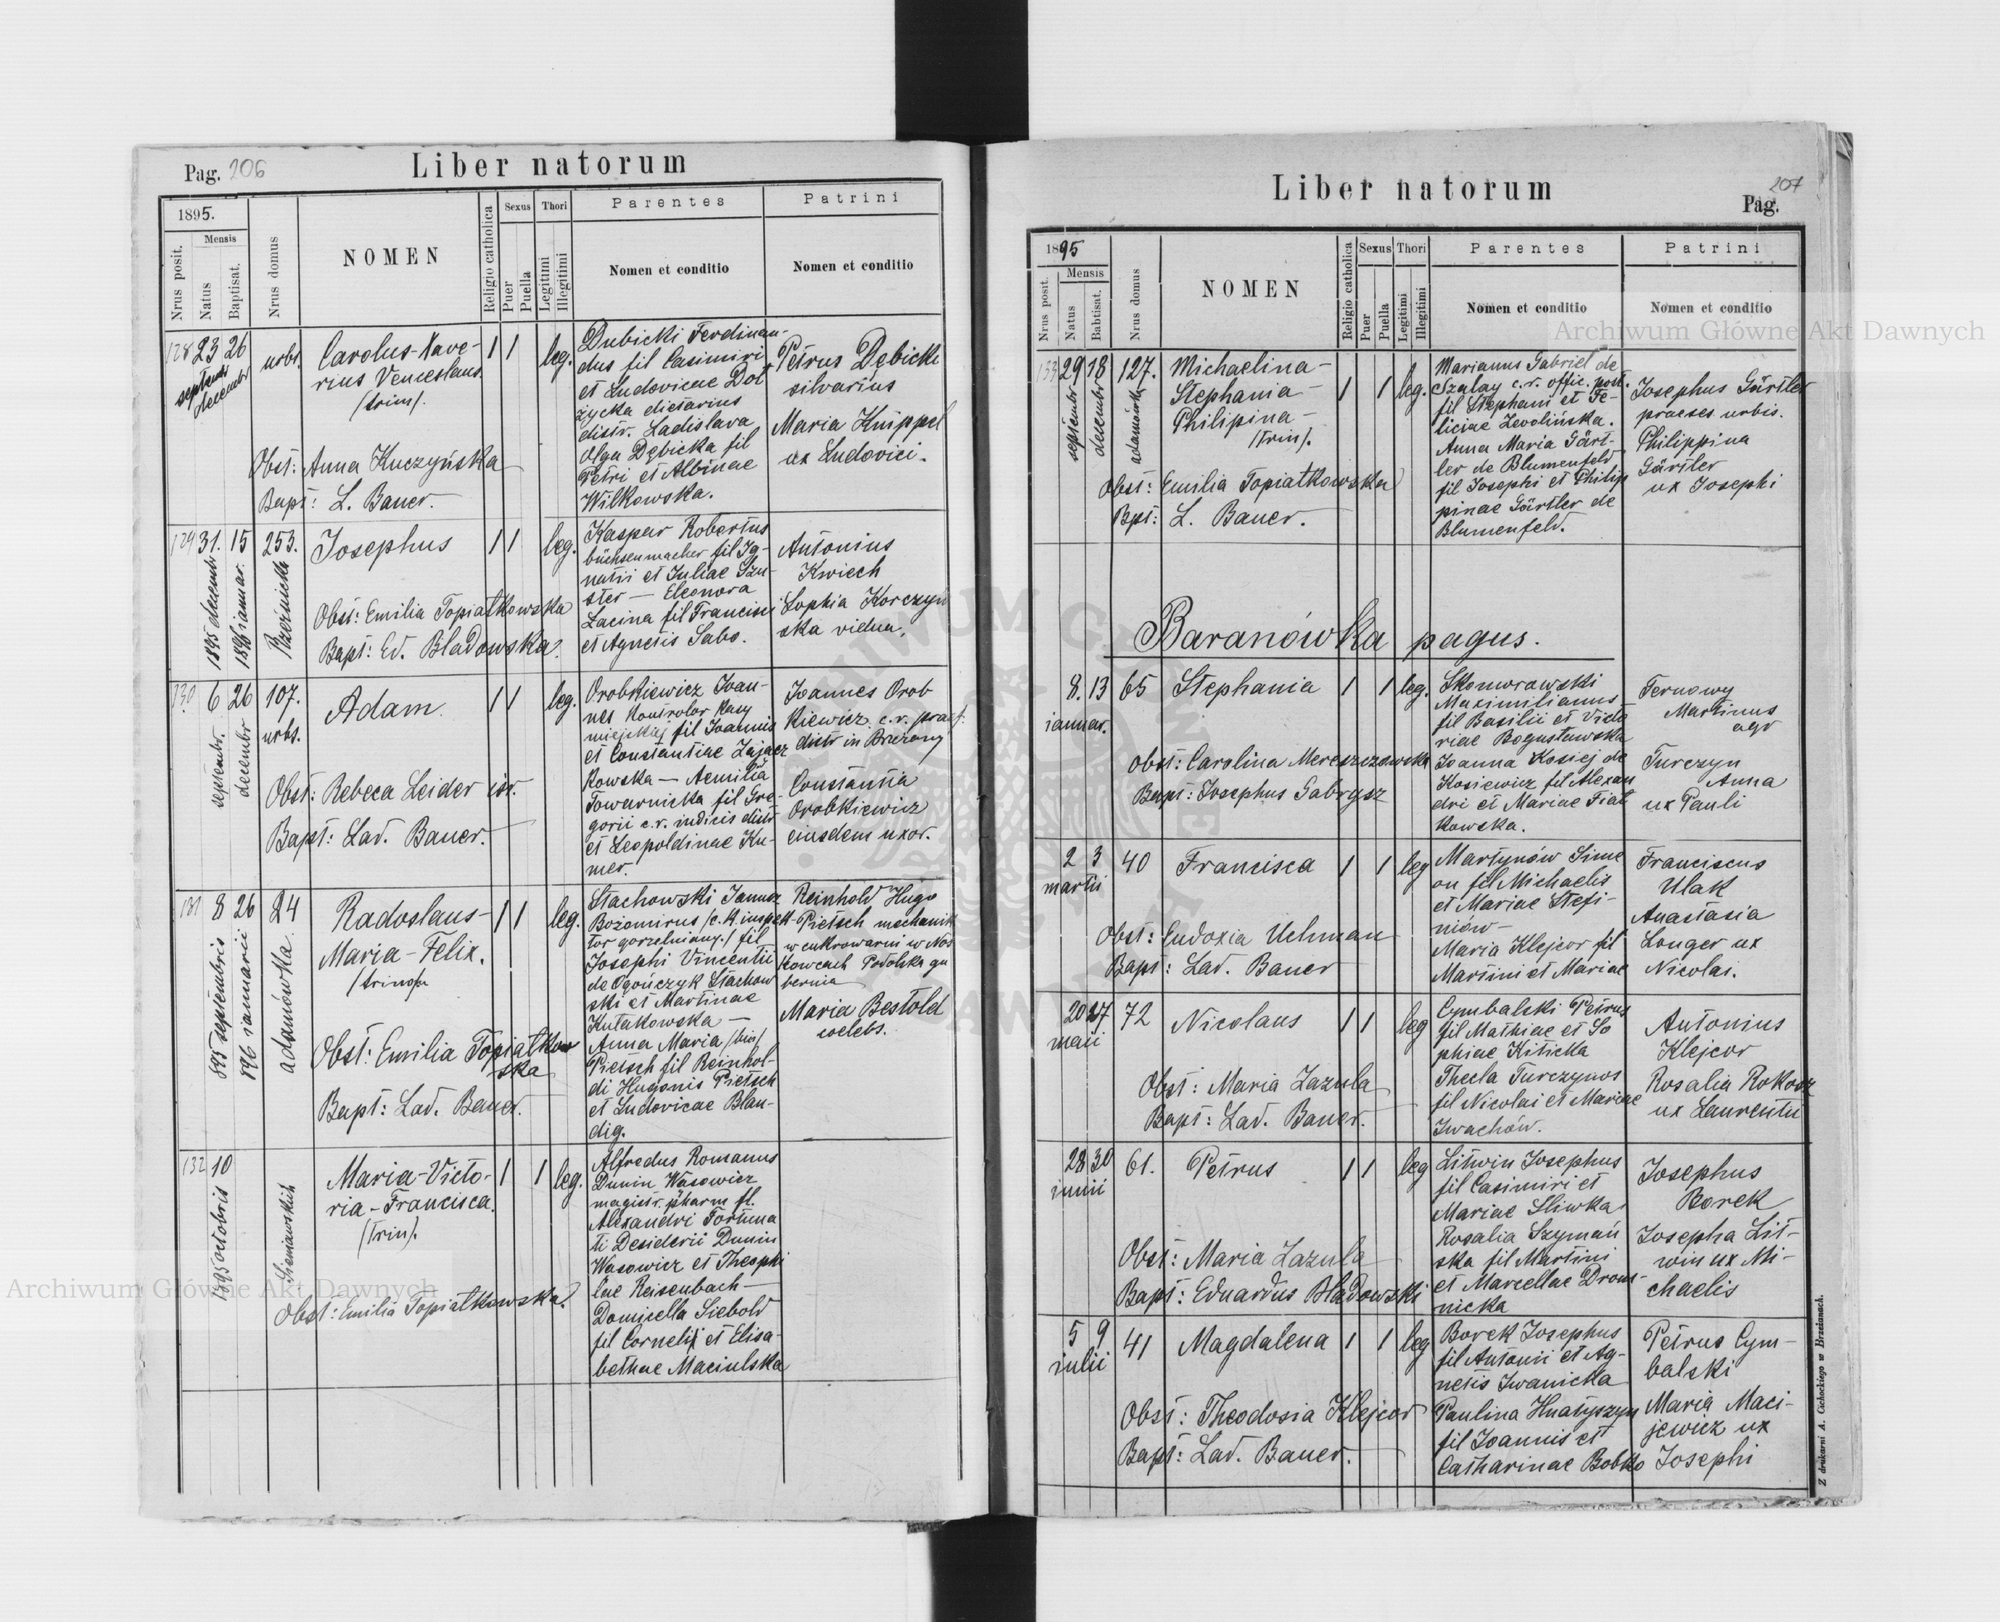 Pag. 206
Liber natorum
1895.
Mensis
Nrus posit.
Natus
Baptisat.
Nrus domus
NOMEN
Religio catholica
Sexus
Puer
Puella
Thori
Legitimi
Illegitimi
Parentes
Nomen et conditio
Patrini
Nomen et conditio
128 23 26 urbs. Carolus-Xave- 1 1 leg.
septembr decembr
rius Venceslaus.
/trin/.
Obst: Anna Kuczyńska
Bapt: L. Bauer.
Dubicki Ferdinan-
dus fil Casimiri
et Ludovicae Doł
życka dietarius
distr. Ladislava
Olga Dębicka fil
Petri et Albinae
Wilkowska.
Petrus Dębicki
silvarius
Maria Knippel
ux Ludovici.
129 31. 15 253. Josephus 1 1 leg.
1895 decembr 1896 januar.
Obst: Emilia Topiatkowska
Bapt: Ed. Bladowska.
Kaspar Robertus
büchsenmacher fil Ig-
natii et Juliae Szu-
ster — Eleonora
Lacina fil Francisci
et Agnetis Sabo.
Antonius
Kwiech
Sophia Korczyń
ska vidua.
130 6 26 107. Adam. 1 1 leg.
septembr. decembr urbs.
Obst: Rebeca Leider isr.
Bapt: Lad. Bauer.
Orobkiewicz Joan-
nes Kontrolor Kasy
miejskiej fil Joannis
et Constantiae Zającz
kowska — Aemilia
Towarnicka fil Gre-
gorii c.r. iudicis distr
et Leopoldinae Ku-
mer.
Joannes Orob
kiewicz c.r. pract.
distr in Brzeżany
Constantia
Orobkiewicz
eiusdem uxor.
131 8 26 24 Radoslaus- 1 1 leg.
895 septembris 896 ianuarii adamówka.
Maria-Felix.
/trinom
Obst: Emilia Topiatkow
ska
Bapt: Lad. Bauer.
Stachowski Janusz
Bożomirus /c.k. inspek-
tor gorzelniany/ fil
Josephi Vincentii
de Ogończyk Stachow
ski et Martinae
Kułakowska —
Anna Maria /bin/
Pietsch fil Reinhol-
di Hugonis Pietsch
et Ludovicae Blau-
dig.
Reinhold Hugo
Pietsch mechanik
w cukrowarni w Nos
kowcach Podolska gu
bernia
Maria Bestold
coelebs.
132 10 Maria-Victo- 1 1 leg.
1895 octobris Sieniawskich
ria-Francisca.
/trin/.
Obst: Emilia Topiatkowska.
Alfredus Romanus
Dunin Wąsowicz
magistr. pharm fl.
Alexandri Fortuna
ti Desiderii Dunin
Wąsowicz et Theophi
lae Reisenbach —
Domicella Siebold
fil Cornelii et Elisa-
bethae Maciulska
Liber natorum
207
Pag.
1895
Mensis
Nrus posit.
Natus
Babtisat.
Nrus domus
NOMEN
Religio catholica
Sexus
Puer
Puella
Thori
Legitimi
Illegitimi
Parentes
Nomen et conditio
Patrini
Nomen et conditio
133 29 18 127. Michaelina- 1 1 leg.
septembr decembr adamówka
Stephania-
Philipina-
/trin/.
Obst: Emilia Topiatkowska
Bpt: L. Bauer.
Marianus Gabriel de
Szalay c.r. offic. post.
fil Stephani et Fe-
liciae Zwolińska.
Anna Maria Gärt-
ler de Blumenfeld
fil Josephi et Philip
pinae Gärtler de
Blumenfeld.
Josephus Gärtler
praeses urbis.
Philippina
Gärtler
ux Josephi
Baranówka pagus.
8. 13 65 Stephania 1 1 leg.
januar.
Obst: Carolina Mereszczowska
Bapt: Josephus Gabrysz
Skomorowski
Maximilianus
fil Basilii et Victo
riae Bogusławska
Joanna Kosiej de
Kosiewicz fil Alexan
dri et Mariae Fiat
kowska.
Ternowy
Martinus
agr
Turczyn
Anna
ux Pauli
2 3 40 Francisca 1 1 leg
martii
Obst: Eudoxia Uchman
Bapt: Lad. Bauer
Martynów Sime
on fil Michaelis
et Mariae Stefi-
niów-
Maria Klejcor fil
Martini et Mariae
Franciscus
Ulak
Anastasia
Longer ux
Nicolai.
20 27 72 Nicolaus 1 1 leg
maii
Obst: Maria Zazula
Bapt: Lad. Bauer.
Cymbalski Petrus
fil Mathiae et So
phiae Kiticka
Thecla Turczynos
fil Nicolai et Mariae
Iwachów.
Antonius
Klejcor
Rosalia Rokosz
ux Laurentii
28 30 61. Petrus 1 1 leg
iunii
Obst: Maria Zazula
Bapt: Eduardus Bladowski
Litwin Josephus
fil Casimiri et
Mariae Sliwka
Rosalia Szymań
ska fil Martini
et Marcellae Drom-
nicka
Josephus
Borek
Josepha Lit-
win ux Mi-
chaelis
5 9 41 Magdalena 1 1 leg
iulii
Obst: Theodosia Klejcor
Bapt: Lad. Bauer.
Borek Josephus
fil Antonii et Ag-
netis Iwanicka
Paulina Hnatyszyn
fil Joannis et
Catharinae Bobko
Petrus Cym-
balski
Maria Maci-
jewicz ux
Josephi
Z drukarni A. Cichockiego w Brzeżanach.
Archiwum Główne Akt Dawnych
Archiwum Główne Akt Dawnych